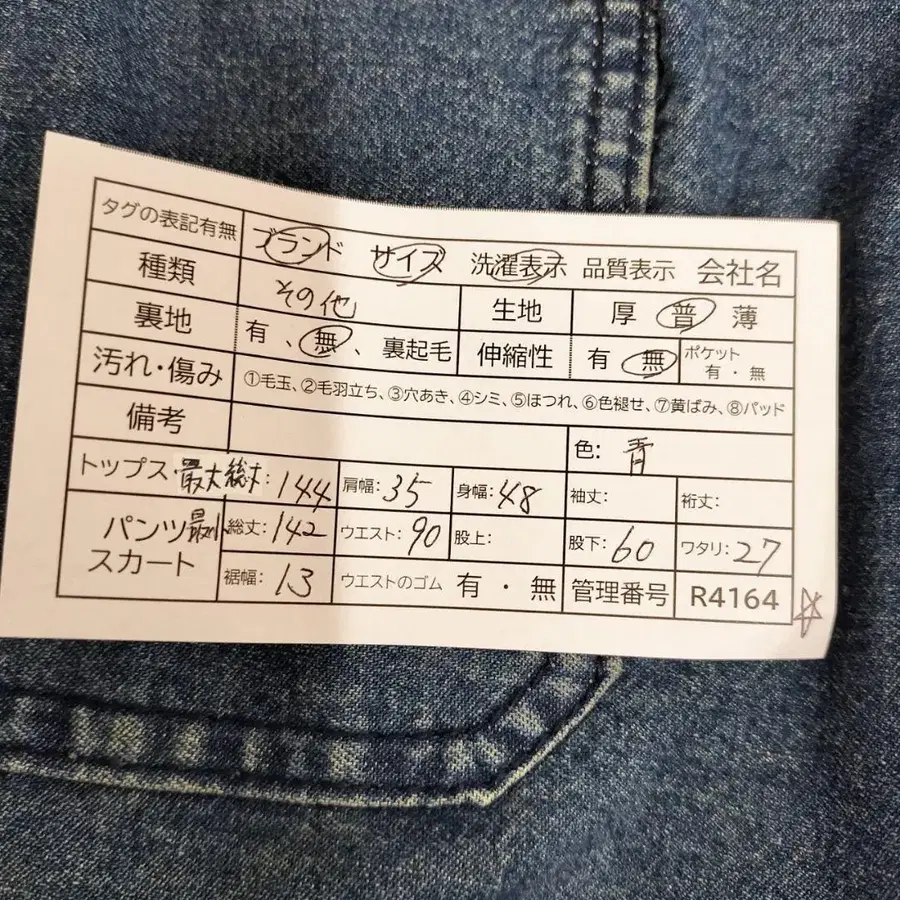 タグの表記有無 ブランド サイズ 洗濯表示 品質表示 会社名
種類 その他 生地 厚 普 薄
裏地 有 、 無 、 裏起毛 伸縮性 有 無 ポケット 有 ・ 無
汚れ・傷み ①毛玉、②毛羽立ち、③穴あき、④シミ、⑤ほつれ、⑥色褪せ、⑦黄ばみ、⑧パッド
備考 色: 青
トップス 最大総丈: 144 肩幅: 35 身幅: 48 袖丈: 裄丈:
パンツ スカート 最小 総丈: 142 ウエスト: 90 股上: 股下: 60 ワタリ: 27
裾幅: 13 ウエストのゴム 有 ・ 無 管理番号 R4164